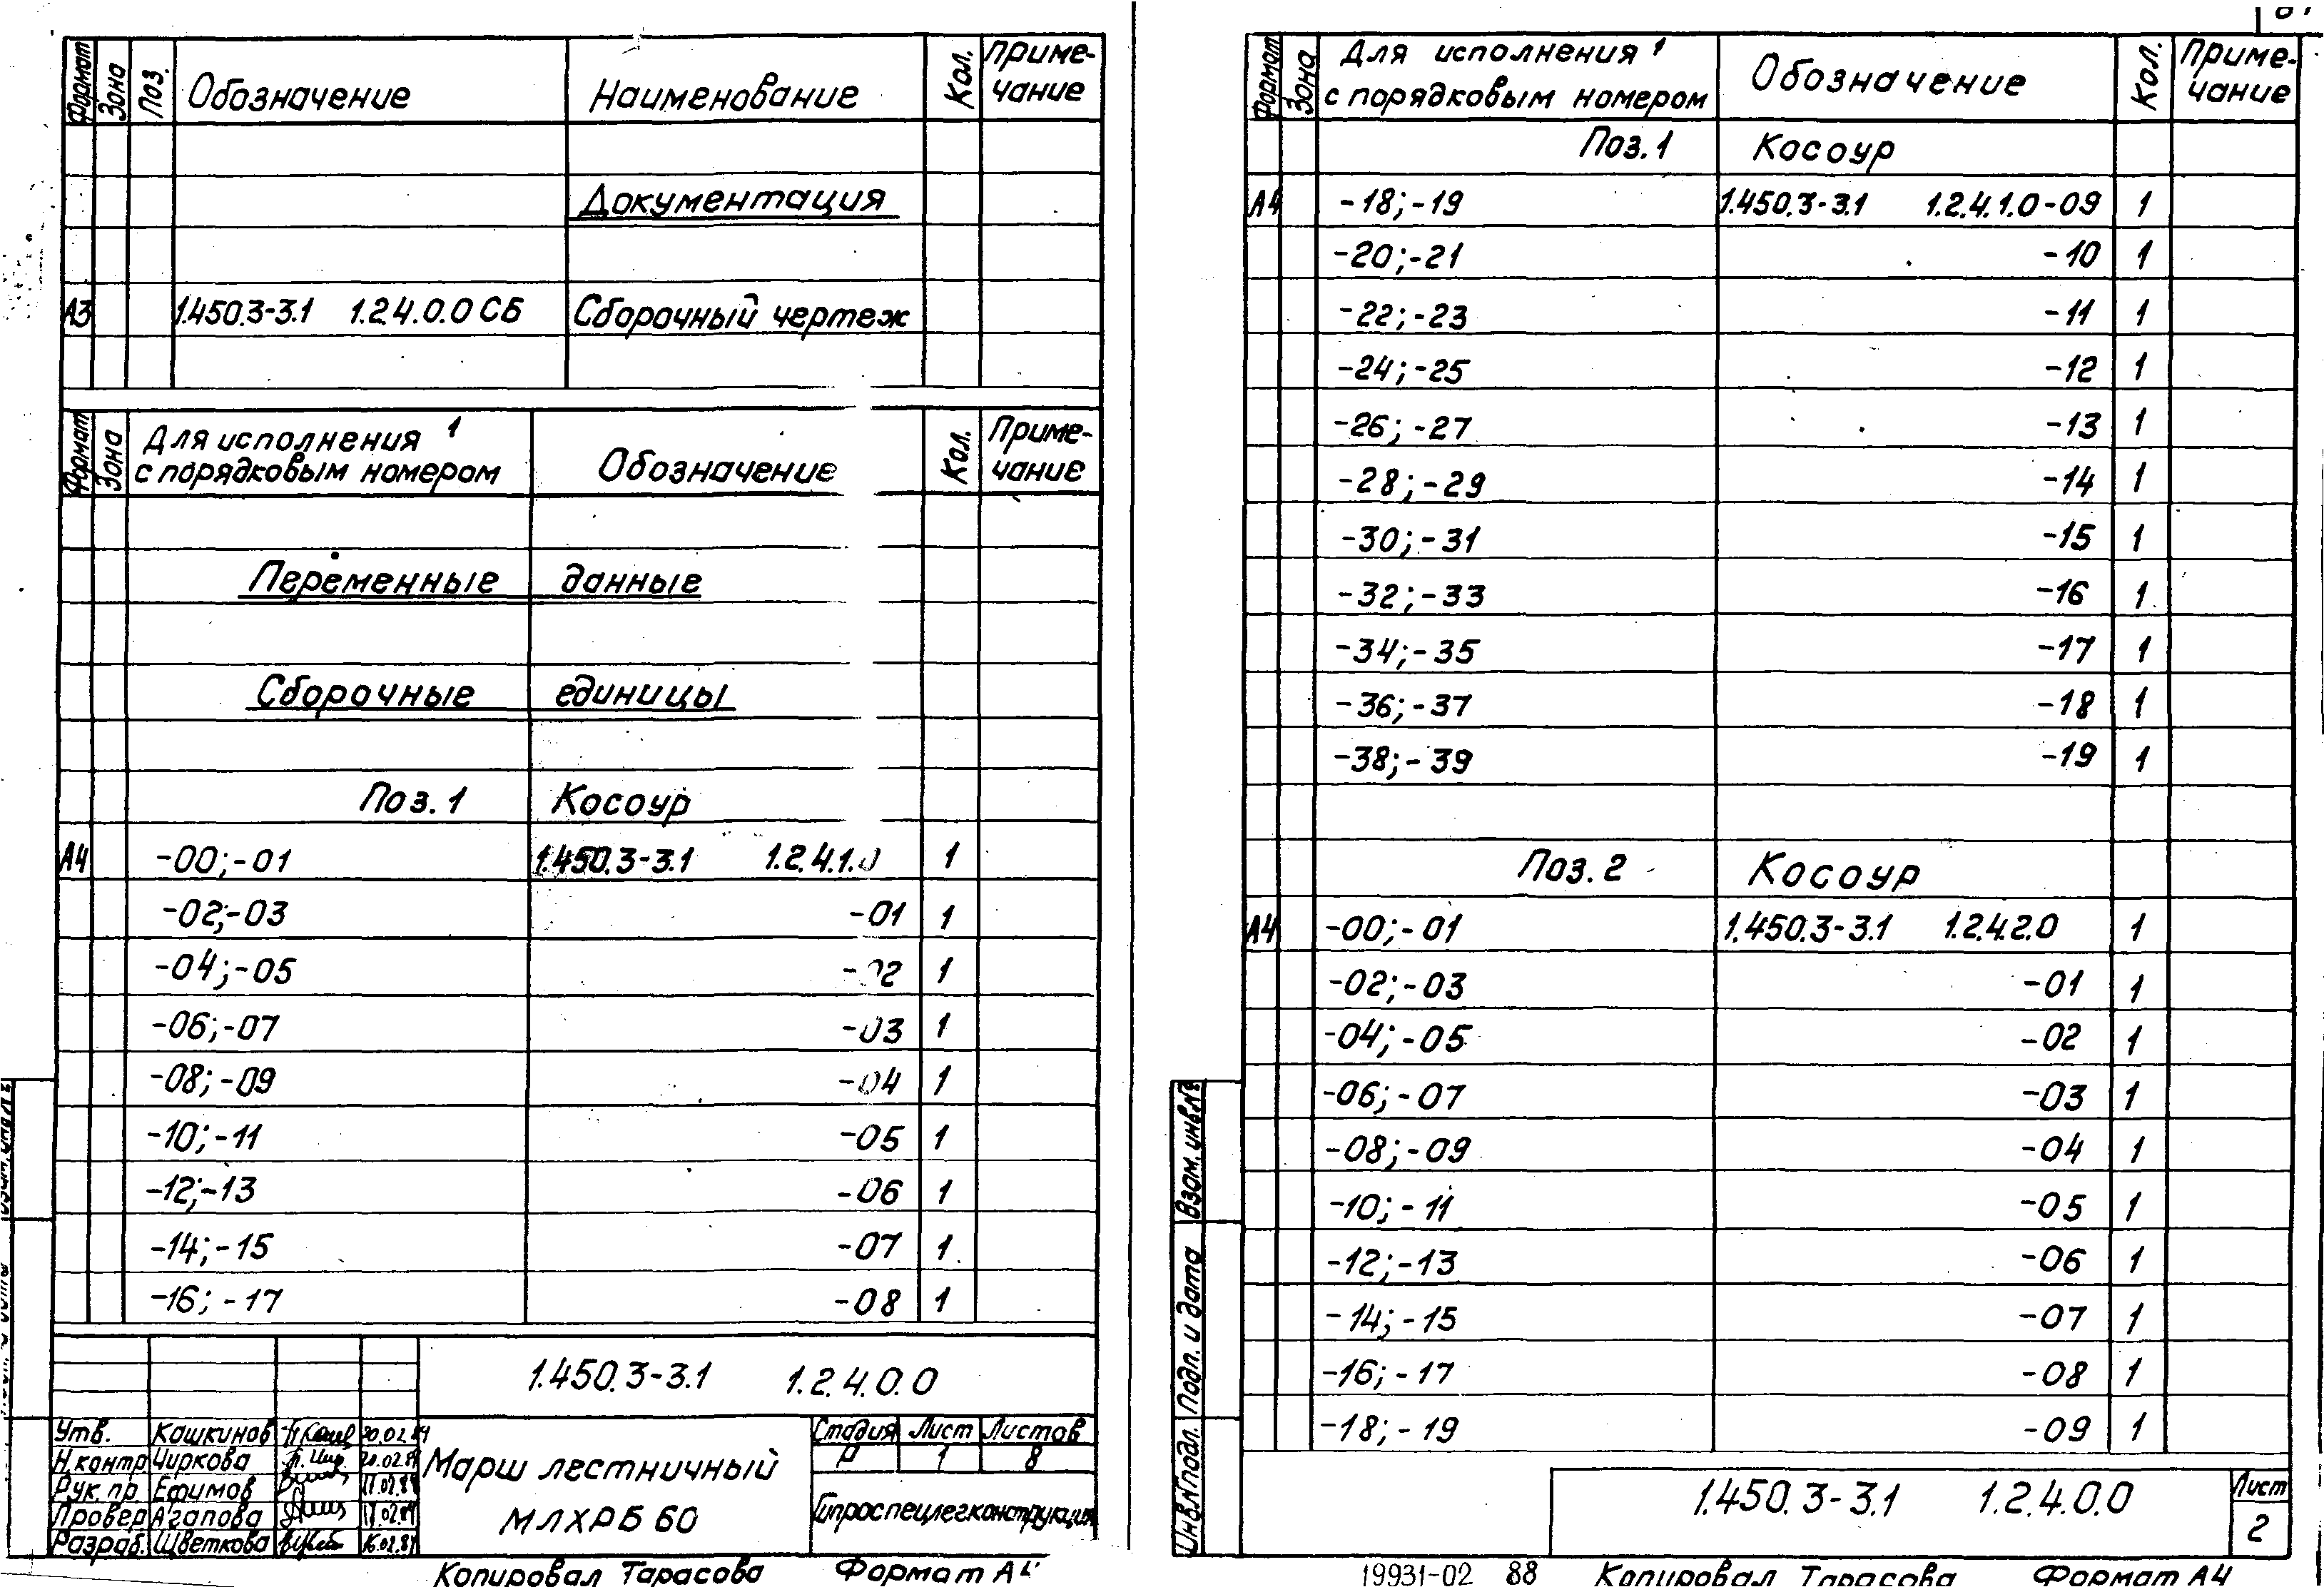 Формат Зона Поз. Обозначение Наименование Кол. Приме-
чание
Документация
А3 1.450.3-3.1 1.2.4.0.0 СБ Сборочный чертеж
Формат Зона Для исполнения 1 Обозначение Кол. Приме-
с порядковым номером чание
Переменные данные
Сборочные единицы
Поз. 1 Косоур
А4 -00;-01 1.450.3-3.1 1.2.4.1.0 1
-02;-03 -01 1
-04;-05 -02 1
-06;-07 -03 1
-08;-09 -04 1
-10;-11 -05 1
-12;-13 -06 1
-14;-15 -07 1
-16;-17 -08 1
1.450.3-3.1 1.2.4.0.0
Утв. Кашкинов 20.02.84
Н.контр Чиркова 20.02.84
Рук. пр. Ефимов 17.02.84
Провер Агапова 17.02.84
Разраб. Цветкова 16.02.84
Марш лестничный
МЛХРБ 60
Стадия Лист Листов
Р 1 8
Гипроспецлегконструкция
Копировал Тарасова Формат А4
Формат Зона Для исполнения 1 Обозначение Кол. Приме-
с порядковым номером чание
Поз. 1 Косоур
А4 -18;-19 1.450.3-3.1 1.2.4.1.0-09 1
-20;-21 -10 1
-22;-23 -11 1
-24;-25 -12 1
-26;-27 -13 1
-28;-29 -14 1
-30;-31 -15 1
-32;-33 -16 1
-34;-35 -17 1
-36;-37 -18 1
-38;-39 -19 1
Поз. 2 Косоур
А4 -00;-01 1.450.3-3.1 1.2.4.2.0 1
-02;-03 -01 1
-04;-05 -02 1
-06;-07 -03 1
-08;-09 -04 1
-10;-11 -05 1
-12;-13 -06 1
-14;-15 -07 1
-16;-17 -08 1
-18;-19 -09 1
Взам. инв.№
Подп. и дата
Инв.№подл.
1.450.3-3.1 1.2.4.0.0
Лист
2
19931-02 88 Копировал Тарасова Формат А4